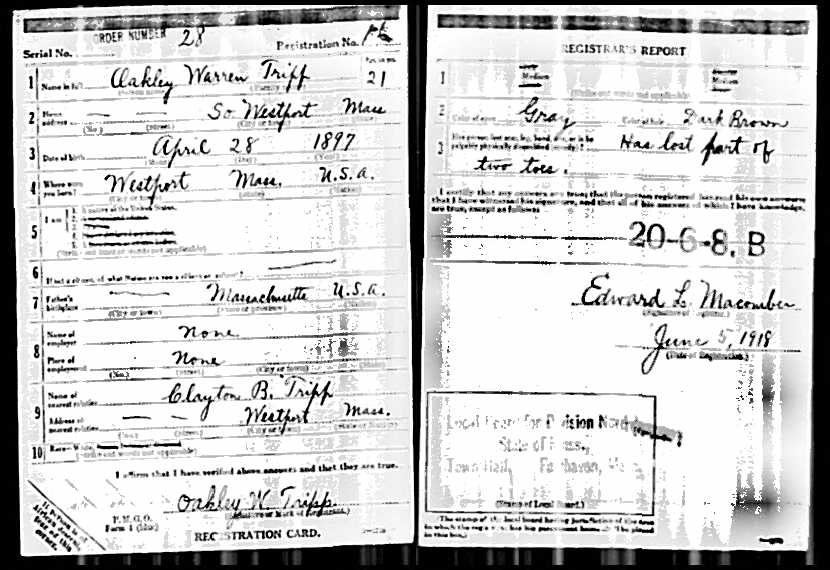 ORDER NUMBER 28
Serial No. Registration No.
1 Name in full Oakley Warren Tripp 21
(Family name)
2 Home address So. Westport Mass
(No.) (Street) (City or town)
3 Date of birth April 28 1897
(Month) (Day) (Year)
4 Where were you born? Westport Mass. U.S.A.
5 I am
6
7 Father's birthplace Massachusetts U.S.A.
(City or town)
8 Name of employer None
Place of employment None
(No.) (Street) (City or town)
9 Name of nearest relative Clayton B. Tripp
Address of nearest relative Westport Mass.
(No.) (Street) (City or town)
10 Race—White,
I affirm that I have verified above answers and that they are true.
Oakley W. Tripp.
P. M. G. O.
Form 1
REGISTRATION CARD.
REGISTRAR'S REPORT
1 Medium
2 Color of eyes Gray Color of hair Dark Brown
3 Has lost part of
two toes.
I certify that my answers are true; that the person registered has read his own answers;
that I have witnessed his signature, and that all of his answers of which I have knowledge
are true, except as follows:
20-6-8. B
Edward L. Macomber
(Signature of Registrar.)
June 5, 1918
(Date of Registration.)
Local Board for Division
State of Mass.,
Town Hall, Fairhaven, Mass.
(Stamp of Local Board.)
(The stamp of the local board having jurisdiction of the area
in which the registrant has his permanent home shall be placed
in this box.)